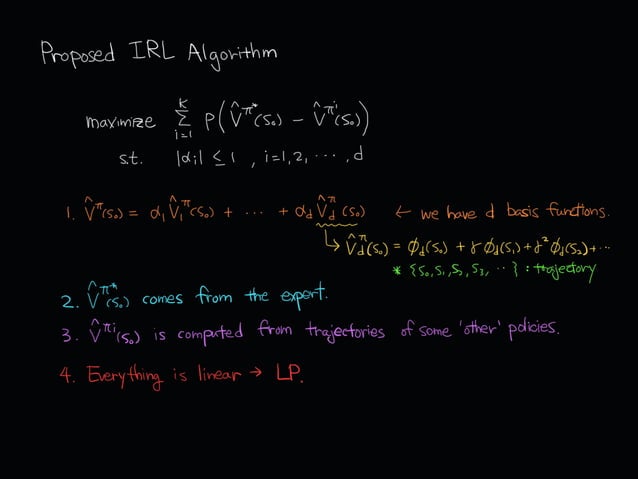 Proposed IRL Algorithm
maximize Σ_{i=1}^{K} p(V̂^{π*}(s₀) − V̂^{πⁱ}(s₀))
s.t. |αi| ≤ 1 , i=1,2, ⋯ , d
1. V̂^π(s₀) = α₁V̂₁^π(s₀) + ⋯ + α_d V̂_d^π(s₀) ← we have d basis functions.
↳ V̂_d^π(s₀) = ϕ_d(s₀) + γ ϕ_d(s₁) + γ² ϕ_d(s₂) + ⋯
* {s₀, s₁, s₂, s₃, ⋯ } : trajectory
2. V̂^{π*}(s₀) comes from the expert.
3. V̂^{πi}(s₀) is computed from trajectories of some 'other' policies.
4. Everything is linear → LP.